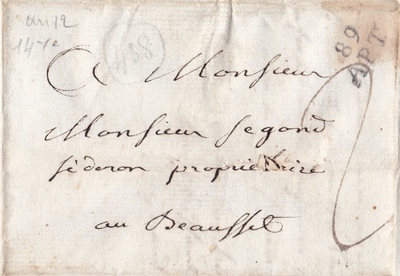 an 12
438
89
APT
A Monsieur
2
Monsieur Segond
féderon propriétaire
au Beausset